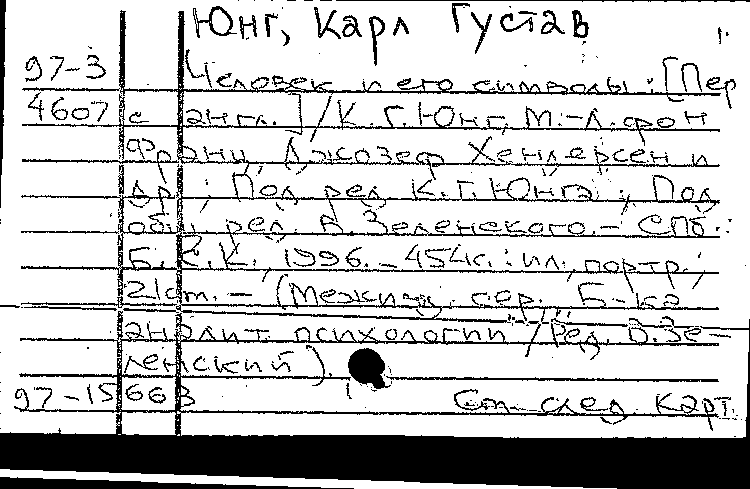 Юнг, Карл Густав
1.
97-3 Человек и его символы : [Пер
4607 с англ.] / К.Г.Юнг, М.-Л. фон
Франц, Джозеф Хендерсен и
др.; Под ред. К.Г.Юнга; Под
общ. ред. В.Зеленского. - СПб.:
Б.С.К., 1996. - 454с. : ил., портр.;
21cm. - (Межизд. сер. "Б-ка
аналит. психологии" / Ред. В.Зе-
ленский).
97-15663 См. след. карт.